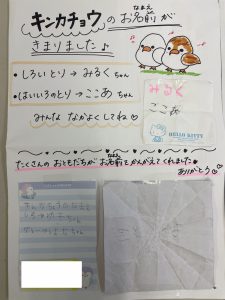 キンカチョウのお名前が
なまえ
きまりました♪
•しろいとり→みるくちゃん
•はいいろのとり→ここあちゃん
みんな なかよくしてね♡
みるく
ここあ
HELLO KITTY
たくさんのおともだちがお名前をかんがえてくれました♡
なまえ
ありがとう♡